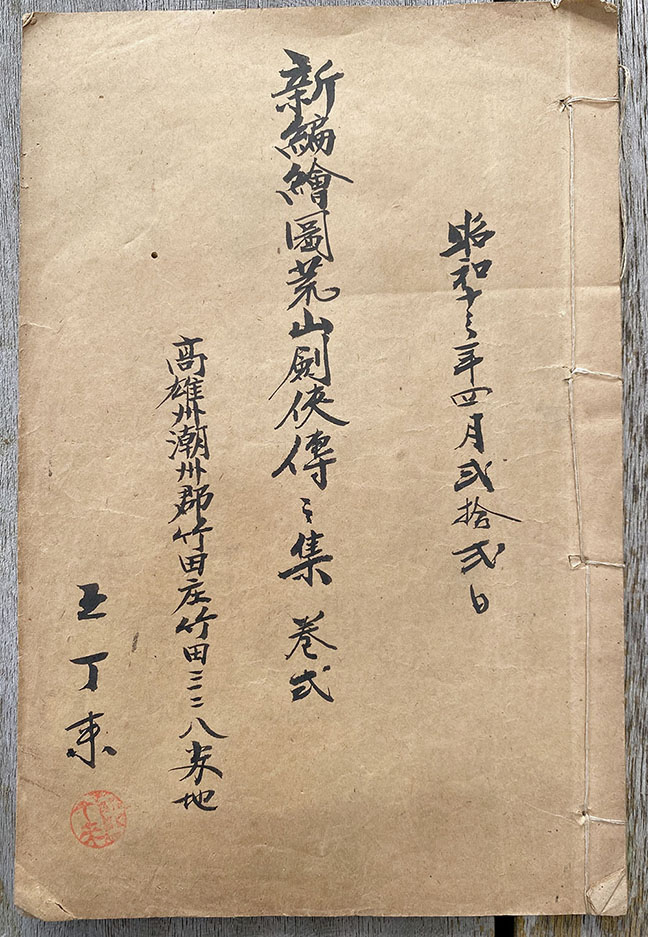 昭和十三年四月弍拾弍日
新編繪圖荒山劍俠傳二集 卷弍
高雄州潮州郡竹田庄竹田三二八番地
王丁来